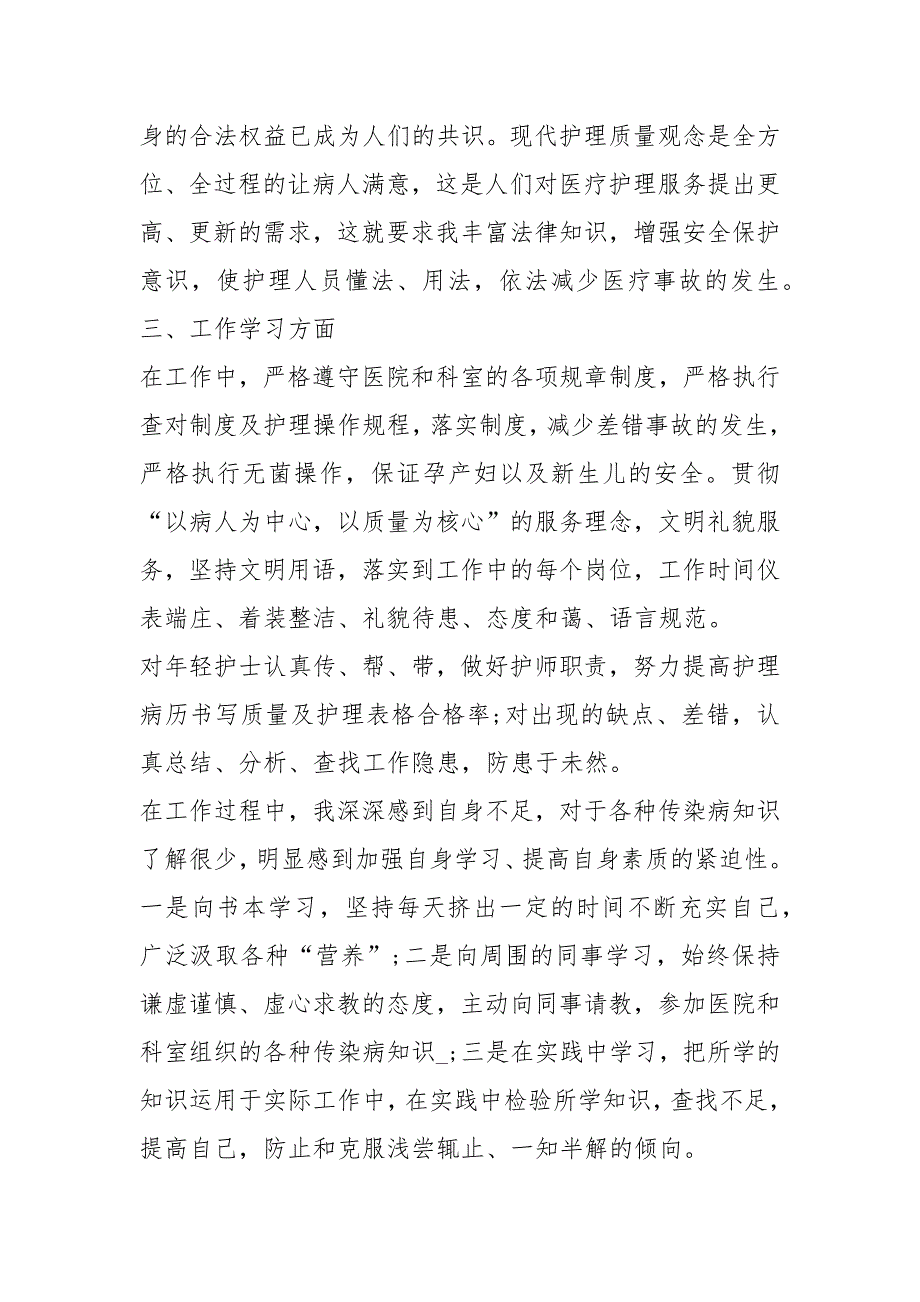 身的合法权益已成为人们的共识。现代护理质量观念是全方
位、全过程的让病人满意，这是人们对医疗护理服务提出更
高、更新的需求，这就要求我丰富法律知识，增强安全保护
意识，使护理人员懂法、用法，依法减少医疗事故的发生。
三、工作学习方面
在工作中，严格遵守医院和科室的各项规章制度，严格执行
查对制度及护理操作规程，落实制度，减少差错事故的发生，
严格执行无菌操作，保证孕产妇以及新生儿的安全。贯彻
“以病人为中心，以质量为核心”的服务理念，文明礼貌服
务，坚持文明用语，落实到工作中的每个岗位，工作时间仪
表端庄、着装整洁、礼貌待患、态度和蔼、语言规范。
对年轻护士认真传、帮、带，做好护师职责，努力提高护理
病历书写质量及护理表格合格率;对出现的缺点、差错，认
真总结、分析、查找工作隐患，防患于未然。
在工作过程中，我深深感到自身不足，对于各种传染病知识
了解很少，明显感到加强自身学习、提高自身素质的紧迫性。
一是向书本学习，坚持每天挤出一定的时间不断充实自己，
广泛汲取各种“营养”;二是向周围的同事学习，始终保持
谦虚谨慎、虚心求教的态度，主动向同事请教，参加医院和
科室组织的各种传染病知识_;三是在实践中学习，把所学的
知识运用于实际工作中，在实践中检验所学知识，查找不足，
提高自己，防止和克服浅尝辄止、一知半解的倾向。